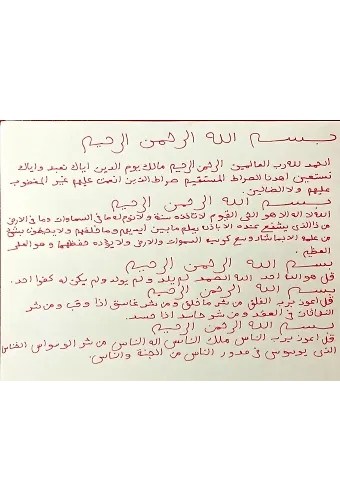 بسم الله الرحمن الرحيم
الحمد لله رب العالمين الرحمن الرحيم مالك يوم الدين اياك نعبد واياك
نستعين اهدنا الصراط المستقيم صراط الذين انعمت عليهم غير المغضوب
عليهم ولا الضالين.
بسم الله الرحمن الرحيم
الله لا اله الا هو الحي القيوم لا تاخذه سنة ولا نوم له ما في السماوات وما في الارض
من ذا الذي يشفع عنده الا باذنه يعلم ما بين ايديهم وما خلفهم ولا يحيطون بشئ
من علمه الا بما شاء وسع كرسيه السموات والارض ولا يؤده حفظهما وهو العلي
العظيم.
بسم الله الرحمن الرحيم
قل هو الله احد الله الصمد لم يلد ولم يولد ولم يكن له كفوا احد.
بسم الله الرحمن الرحيم
قل اعوذ برب الفلق من شر ما خلق ومن شر غاسق اذا وقب ومن شر
النفاثات في العقد ومن شر حاسد اذا حسد.
بسم الله الرحمن الرحيم
قل اعوذ برب الناس ملك الناس اله الناس من شر الوسواس الخناس
الذي يوسوس في صدور الناس من الجنة والناس.